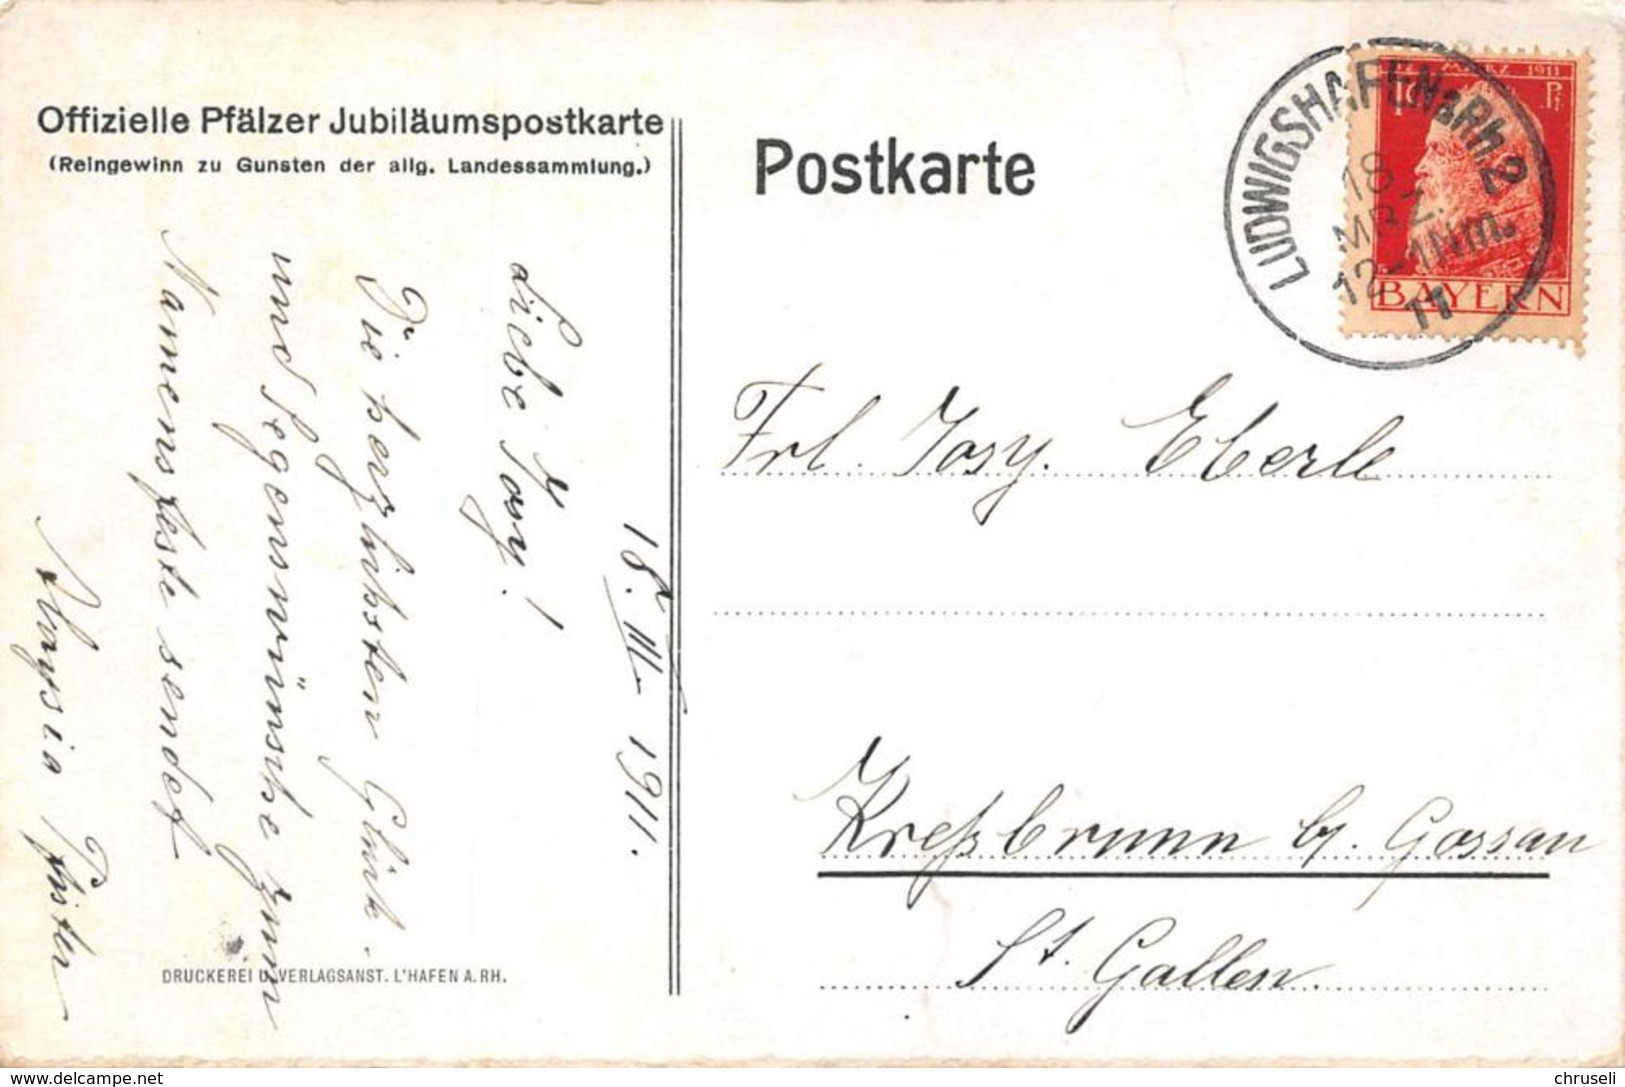 Offizielle Pfälzer Jubiläumspostkarte
(Reingewinn zu Gunsten der allg. Landessammlung.)
Postkarte
LUDWIGSHAFEN a.Rh. 2
18
MRZ.
12-1Nm.
11
12. MÄRZ 1911
10
Pf.
BAYERN
18. III. 1911.
Liebe Josy!
Die herzlichsten Glück-
und Segenswünsche zum
Namensfeste sendet
Aloysia Pfister
Frl. Josy. Eberle
Kreßbrunn b/. Gossau
St. Gallen.
DRUCKEREI U. VERLAGSANST. L'HAFEN A. RH.
www.delcampe.net
chruseli